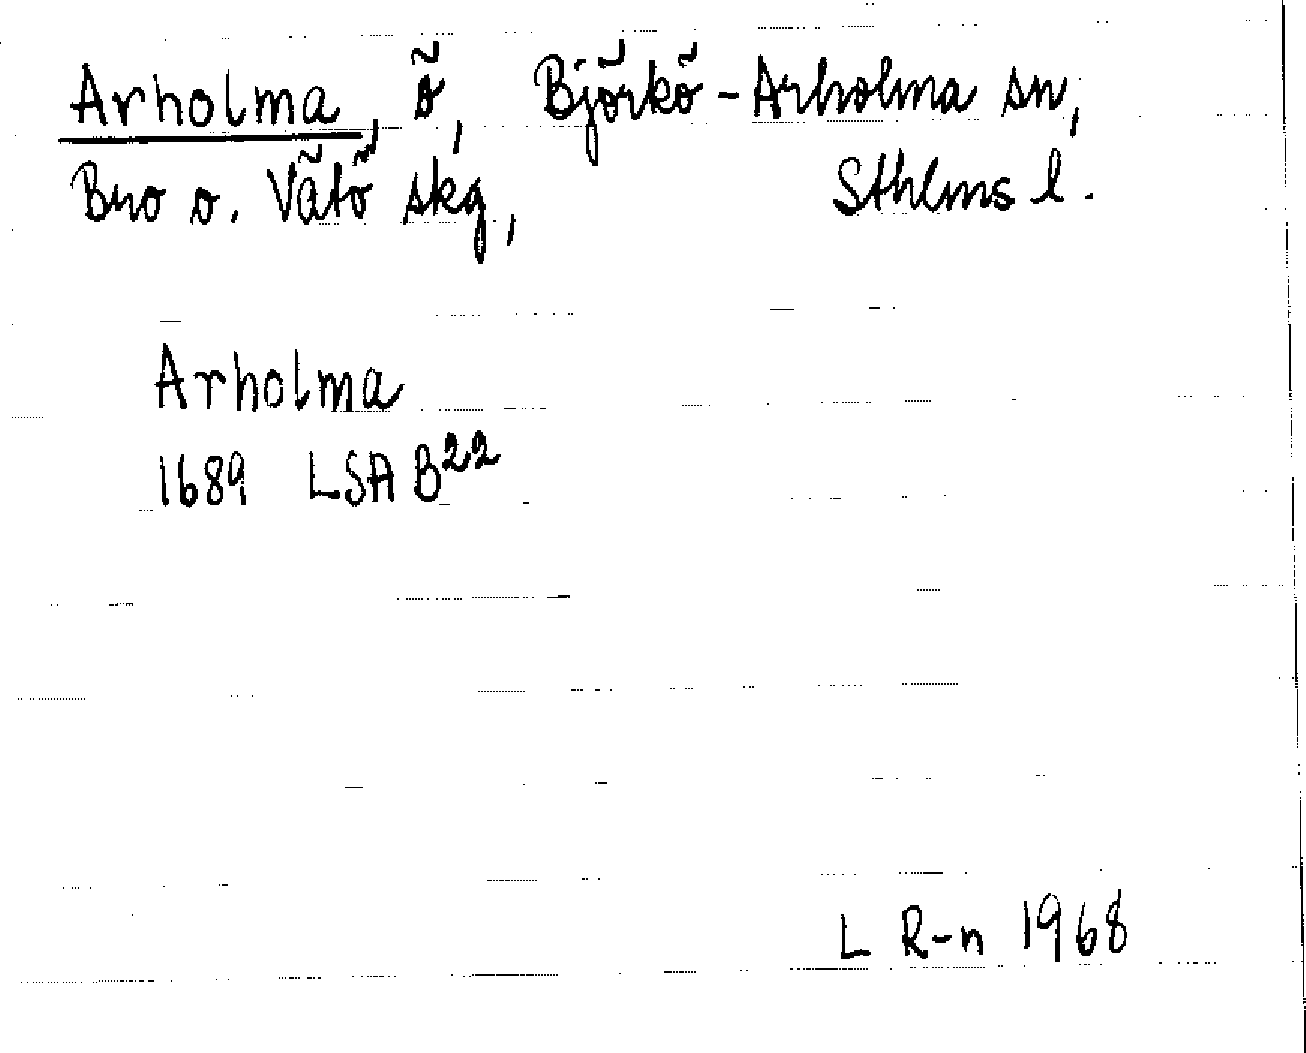 Arholma, ö, Björkö-Arholma sn,
Bro o. Vätö skg, Sthlms l.
Arholma
1689 LSA B22
L R-n 1968